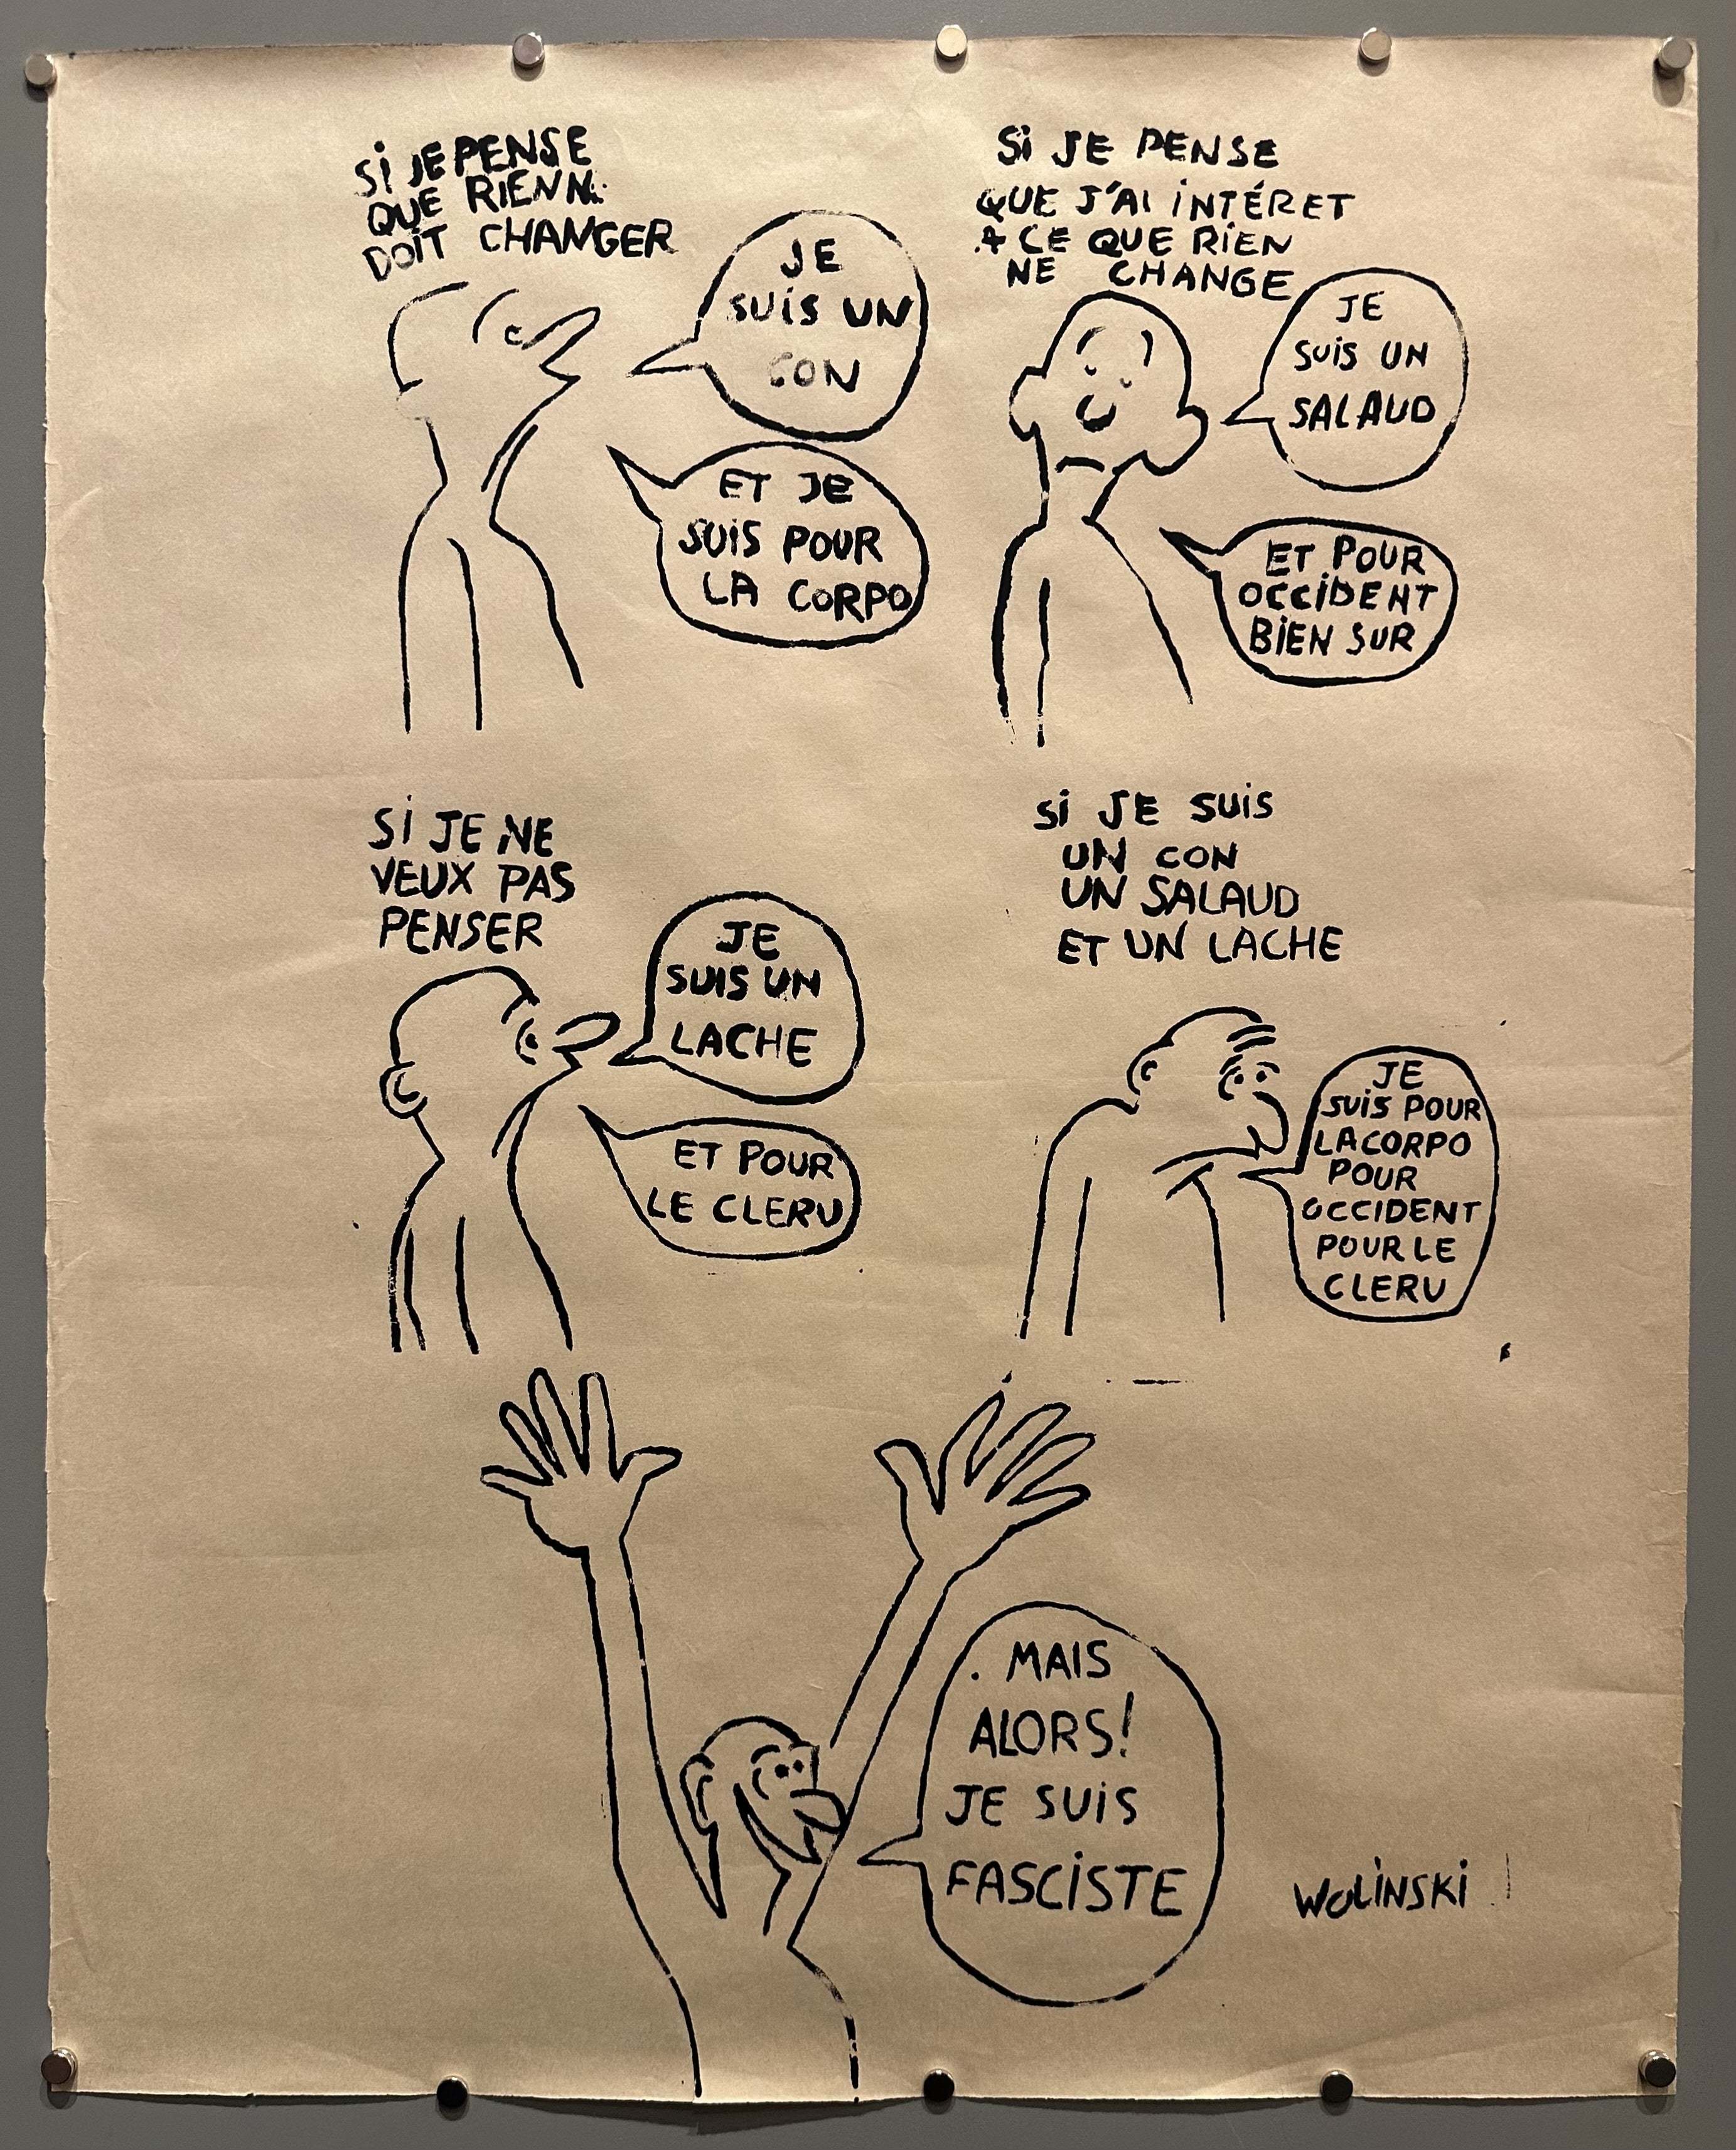 SI JE PENSE
QUE RIEN N.
DOIT CHANGER
JE
SUIS UN
CON
ET JE
SUIS POUR
LA CORPO
SI JE PENSE
QUE J'AI INTÉRET
A CE QUE RIEN
NE CHANGE
JE
SUIS UN
SALAUD
ET POUR
OCCIDENT
BIEN SUR
SI JE NE
VEUX PAS
PENSER
JE
SUIS UN
LACHE
ET POUR
LE CLERU
SI JE SUIS
UN CON
UN SALAUD
ET UN LACHE
JE
SUIS POUR
LA CORPO
POUR
OCCIDENT
POUR LE
CLERU
MAIS
ALORS!
JE SUIS
FASCISTE
WOLINSKI